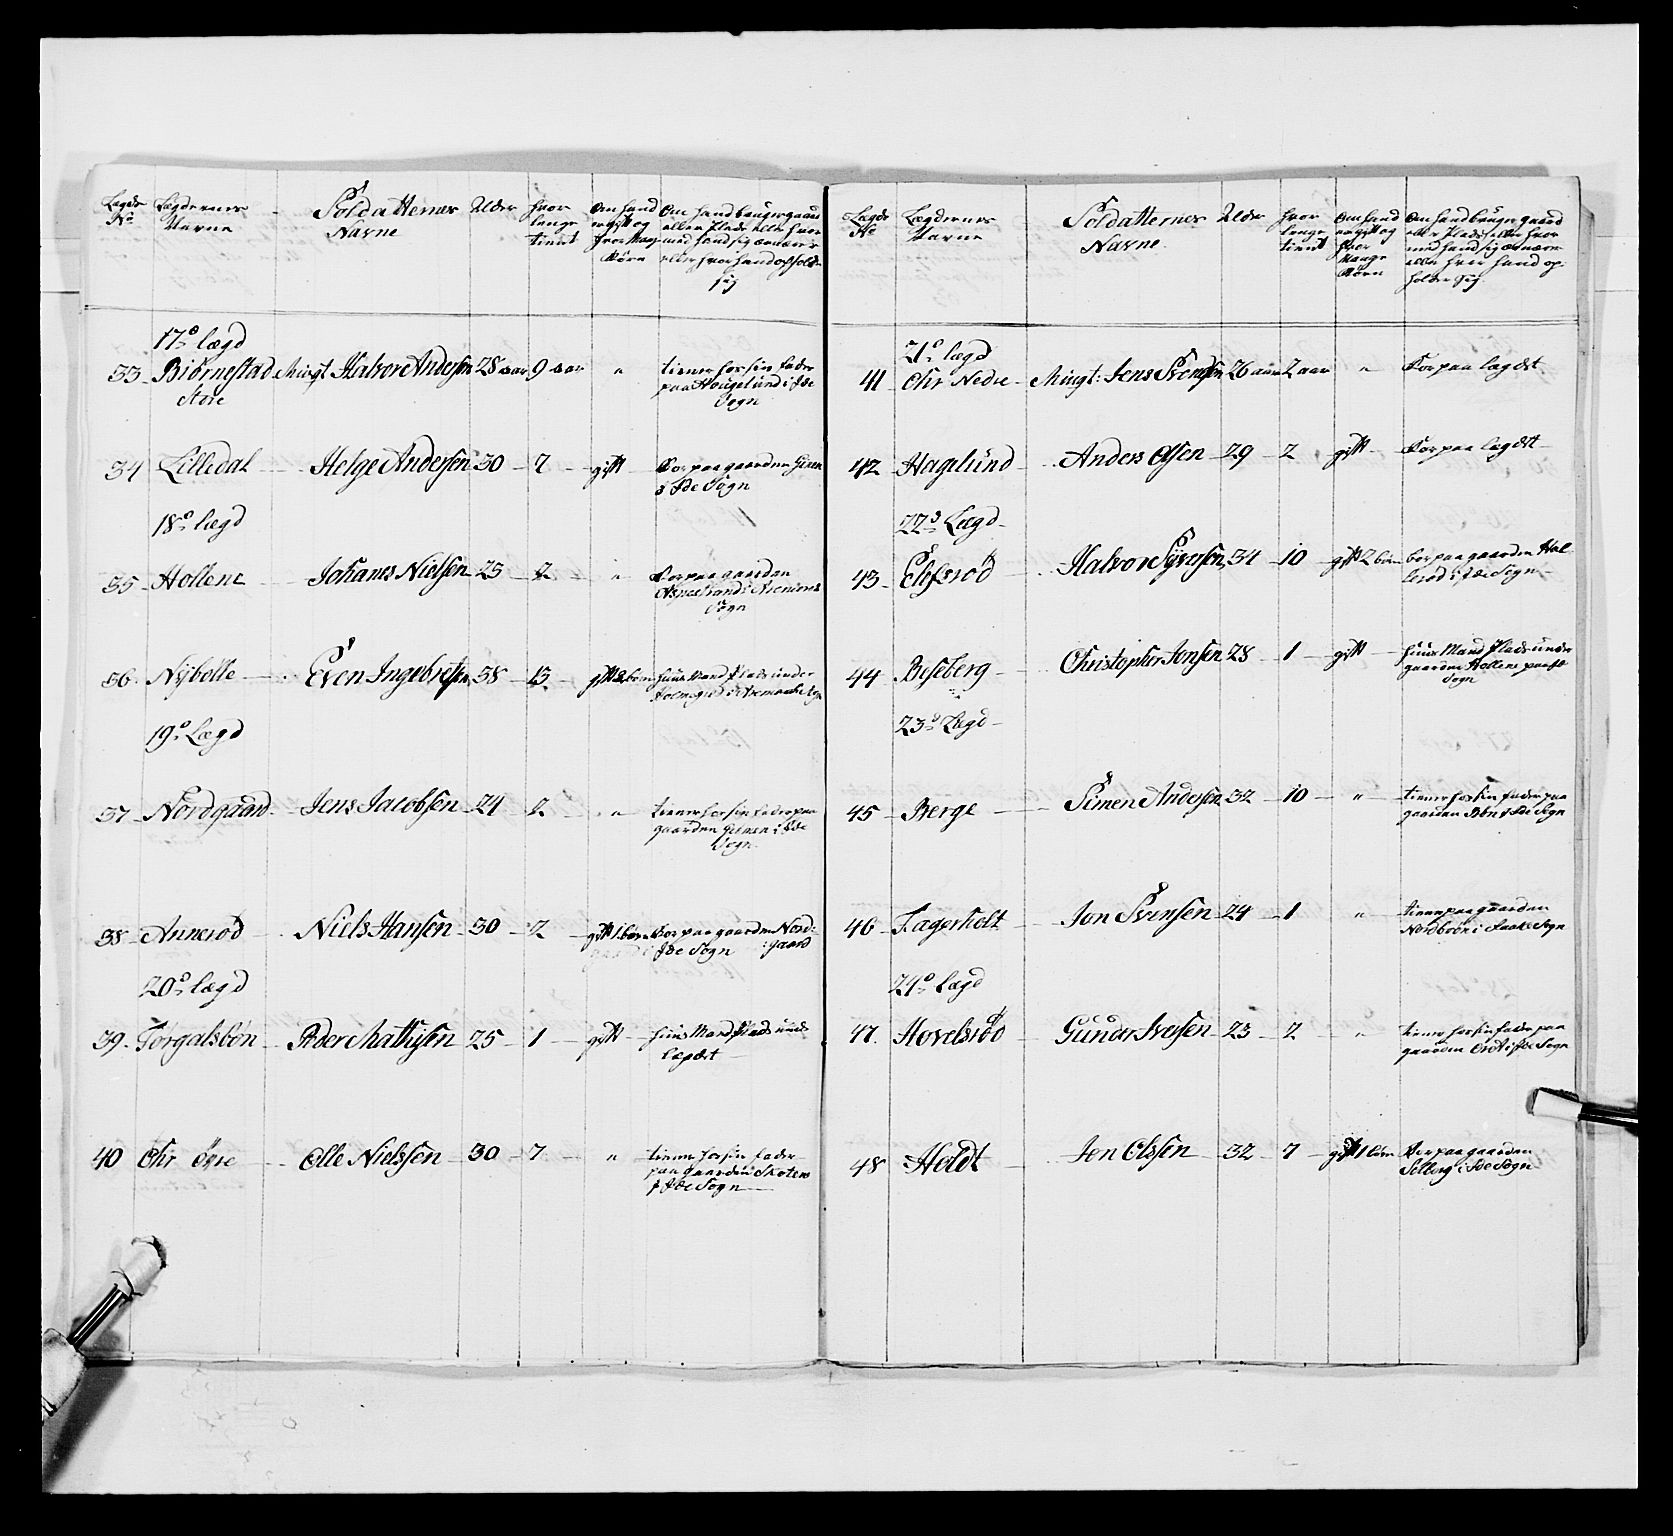 Lægde No
Lægdernes Navne
Soldatternes Navne
Alder
hvor lenge tient
Om hand er gift og hvor mange Børn
Om hand bruger gaard eller Plads eller hvor med hand sig ernærer eller hvor hand opholder sig
17de lægd
33 Biørnestad Store Mungt Halvor Andersen 28 aar 9 aar " tiener for sin fader paa Hougelund i Ide Sogn
34 Lilledal Helge Andersen 30 7 gift Boer paa gaarden i Ide Sogn
18de lægd
35 Hollene Johanes Nielsen 23 2 " Boer paa gaarden Sogn
36 Nÿbolle Even Ingebretsen 38 13 gift børn huus Mand Plads under
19de Lægd
37 Nordgaard Jens Jacobsen 24 2 " tiener for sin fader paa gaarden i Ide Sogn
38 Annerød Niels Hansen 30 2 gift 1 barn Boer paa gaarden Nordgaard i Ide Sogn
20de lægd
39 Torgalsbøn Peder Mathisen 25 1 gift huus Mand Plads under lægdet
40 Ohr øvre Olle Nielssen 30 7 " tiener for sin fader paa gaarden i Ide Sogn
Lægde No
Lægdernes Navne
Soldatternes Navne
Alder
hvor lenge tient
Om hand er gift og hvor Mange Børn
Om hand bruger gaard eller Plads eller hvor med hand sig ernærer eller hvor hand opholder sig
21de lægd
41 Ohr Nedre Mungt: Jens Svensen 26 aar 2 aar " Boer paa lægdet
42 Hagelund Anders Olsen 29 2 gift Boer paa lægdet
22de Lægd
43 Elefsrød Halvor Syversen 34 10 gift 2 børn boer paa gaarden i Ide Sogn
44 Beseberg Christopher Jonsen 28 1 gift huus Mand Plads under gaarden Hollene paa Ide Sogn
23de Lægd
45 Berge Simen Andersen 32 10 " tiener for sin fader paa gaarden Bøn i Ide Sogn
46 Fagerholt Jon Svensen 24 1 " tiener paa gaarden Sogn
24de lægd
47 Hovelsrød Gunder Iversen 23 2 " tiener for sin fader paa gaarden i Ide Sogn
48 Holdt Jon Olssen 32 7 gift 1 barn Boer paa gaarden i Ide Sogn